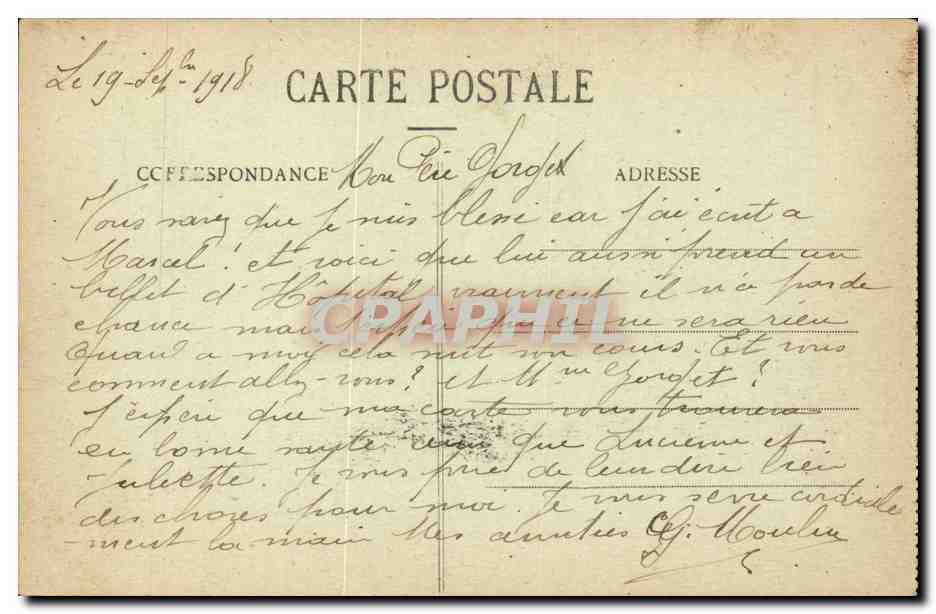 Le 19 - Sepbre - 1918
CARTE POSTALE
CORRESPONDANCE
Mon Père Gorget
ADRESSE
Vous savez que je suis blessé car j'ai écrit a
Marcel! et voici que lui aussi prend un
billet d'Hôpital, vraiment il n'a pas de
chance mais j'espère que ce ne sera rien
Quand a moy cela suit son cours. Et vous
comment allez-vous? et Mme Gorget?
J'espère que ma carte vous trouvera
en bonne santé que Lucienne et
Juliette. Je vous prie de leur dire bien
des choses pour moi. Je vous serre cordiale
-ment la main Mes amitiés G. Moulin
CPAPHIL